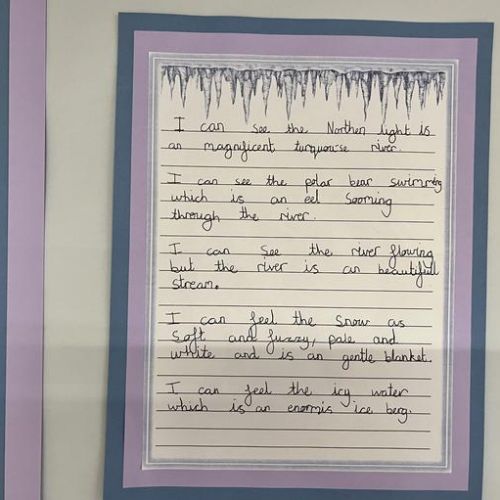 I can see the Northen light is
an magnificent turquouse river.
I can see the polar bear swimming
which is an eel sooming
through the river.
I can see the river flowing
but the river is an beautifull
stream.
I can feel the snow as
soft and fuzzy, pale and
white and is an gentle blanket.
I can feel the icy water
which is an enormis ice berg.